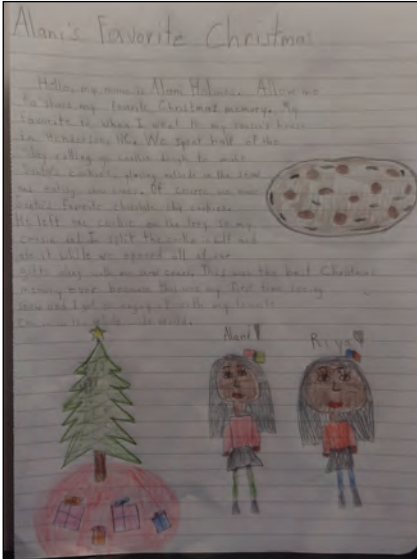 Alani's Favorite Christmas
Hello, my name is Alani Allow me
to share my favorite Christmas memory. My
favorite is when I went to my cousin's house
in Henderson, NC. We spent half of the
day rolling up cookie dough to make
Santa's cookies, playing outside in the snow
and eating snow cream. Of course we made
Santa's favorite chocolate chip cookies.
He left one cookie on the tray so my
cousin and I split the cookie in half and
ate it while we opened all of our
gifts This was the best Christmas
memory ever because this was my first time seeing
snow and I got to enjoy it with my favorite
cousin in the whole wide world.
Alani
Riya